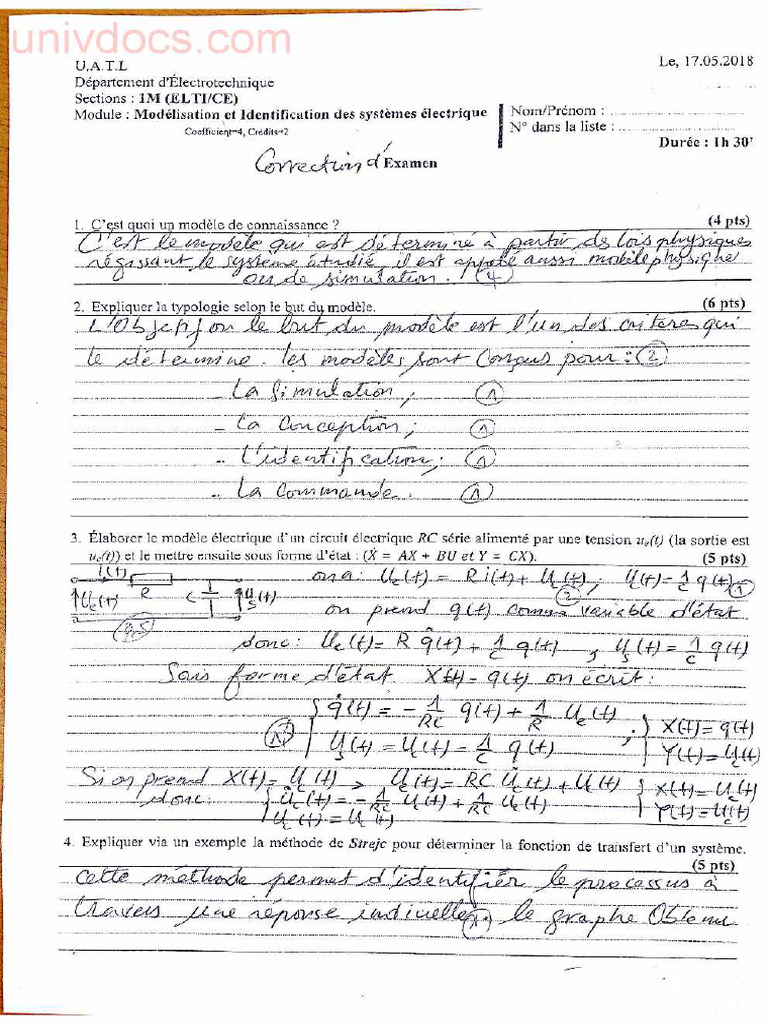 univdocs.com
U.A.T.L
Le, 17.05.2018
Département d'Électrotechnique
Sections : 1M (ELTI/CE)
Module : Modélisation et Identification des systèmes électrique
Nom/Prénom : ..........
Coefficient=4, Crédits=2
N° dans la liste : ..........
Durée : 1h 30'
Correction d'Examen
1. C'est quoi un modèle de connaissance ? (4 pts)
C'est le modèle qui est déterminé à partir de lois physiques
régissant le système étudié, il est appelé aussi modèle physique
ou de simulation. (4)
2. Expliquer la typologie selon le but du modèle. (6 pts)
L'Objectif ou le but du modèle est l'un des critères qui
le détermine. les modèles sont Conçus pour : (2)
- La Simulation ; (1)
- La Conception ; (1)
- L'identification ; (1)
- La Commande. (1)
3. Élaborer le modèle électrique d'un circuit électrique RC série alimenté par une tension ue(t) (la sortie est
uc(t)) et le mettre ensuite sous forme d'état : (Ẋ = AX + BU et Y = CX). (5 pts)
on a : Ue(t) = R i(t) + Uc(t) ;
on prend q(t) comme variable d'état
donc : Ue(t) = R q̇(t) + 1/C q(t) , Us(t) = 1/C q(t)
Sous forme d'état X(t) = q(t) on écrit :
q̇(t) = - 1/RC q(t) + 1/R Ue(t) ; X(t) = q(t)
Us(t) = Uc(t) = 1/C q(t) Y(t) = Uc(t)
Si on prend X(t) = Uc(t) , Ue(t) = RC U̇c(t) + Uc(t) X(t) = Uc(t)
donc : U̇c(t) = - 1/RC Uc(t) + 1/RC Ue(t) Y(t) = Uc(t)
Uc(t) = Uc(t)
4. Expliquer via un exemple la méthode de Strejc pour déterminer la fonction de transfert d'un système.
(5 pts)
Cette méthode permet d'identifier le processus à
travers une réponse indicielle. (1) le graphe Obtenu